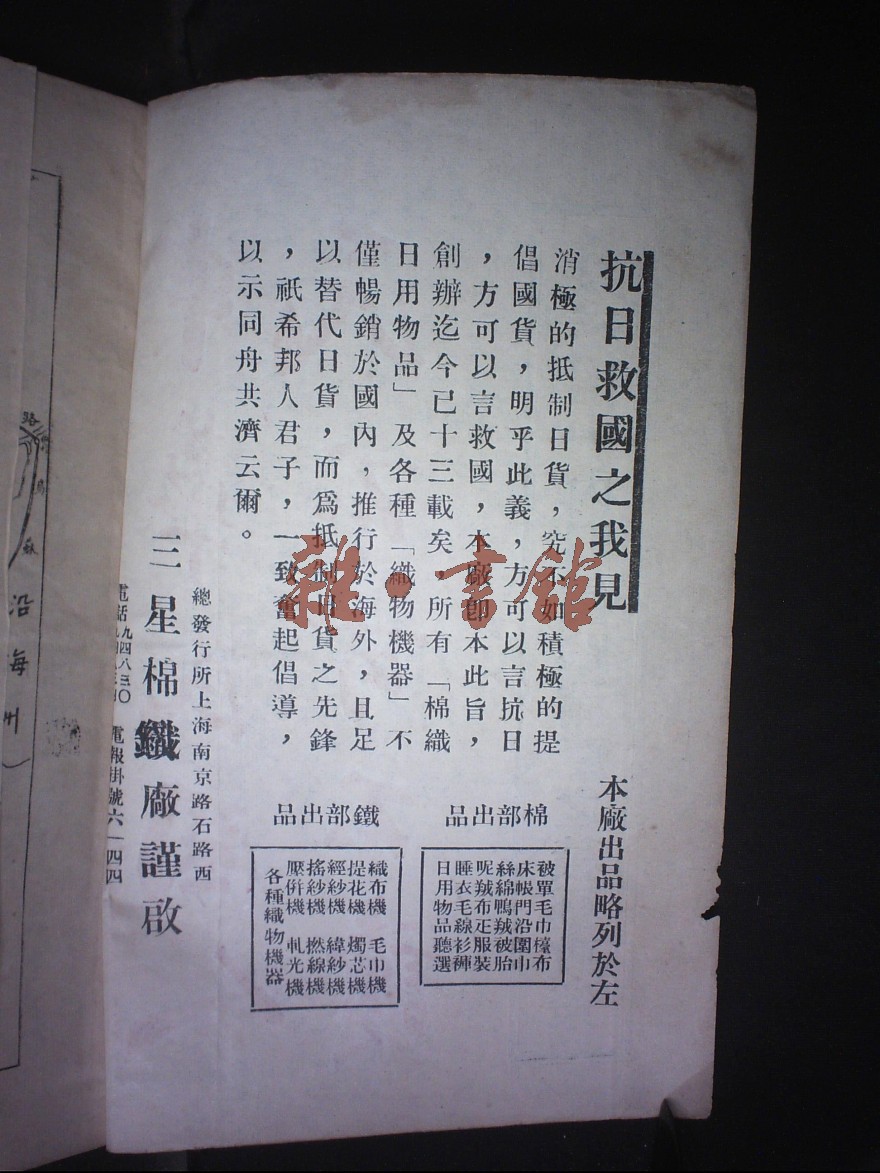 抗日救國之我見
消極的抵制日貨，究不如積極的提
倡國貨，明乎此義，方可以言抗日
，方可以言救國，本廠卽本此旨，
創辦迄今已十三載矣，所有「棉織
日用物品」及各種「織物機器」不
僅暢銷於國內，推行於海外，且足
以替代日貨，而爲抵制日貨之先鋒
，祇希邦人君子，一致奮起倡導，
以示同舟共濟云爾。
本廠出品略列於左
棉部出品
被單毛巾檯布
床帳門沿圍巾
絲綿鴨羢被胎
呢羢布疋服裝
睡衣毛線衫褲
日用物品聽選
鐵部出品
織布機 毛巾機
提花機 燭芯機
經紗機 緯紗機
搖紗機 撚線機
壓併機 軋光機
各種織物機器
總發行所上海南京路石路西
三星棉鐵廠謹啟
電話九四八三〇
電報掛號六一四四
雜·書館
沿海州